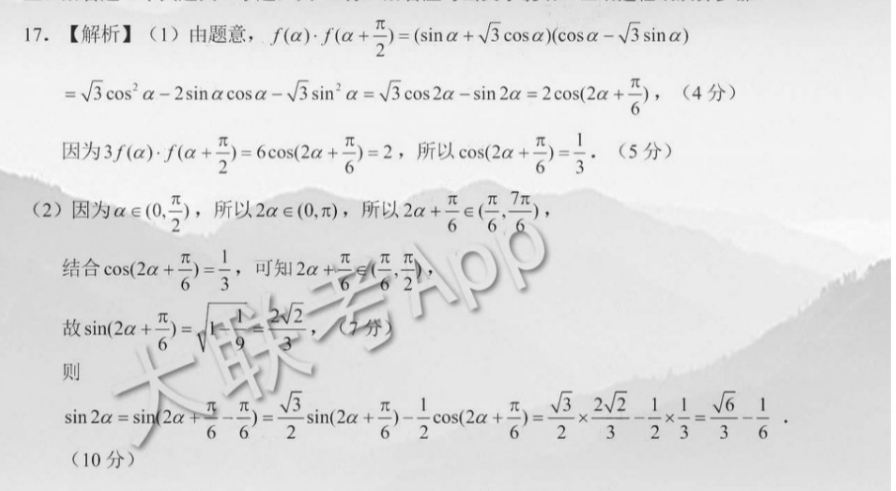 17. 【解析】(1) 由题意, f(α)·f(α+π/2)=(sinα+√3cosα)(cosα-√3sinα)
=√3cos²α-2sinαcosα-√3sin²α=√3cos2α-sin2α=2cos(2α+π/6), (4分)
因为3f(α)·f(α+π/2)=6cos(2α+π/6)=2, 所以cos(2α+π/6)=1/3. (5分)
(2) 因为α∈(0,π/2), 所以2α∈(0,π), 所以2α+π/6∈(π/6,7π/6),
结合cos(2α+π/6)=1/3, 可知2α+π/6∈(π/6,π/2),
故sin(2α+π/6)=√(1-1/9)=2√2/3, (7分)
则
sin2α=sin(2α+π/6-π/6)=√3/2sin(2α+π/6)-1/2cos(2α+π/6)=√3/2×2√2/3-1/2×1/3=√6/3-1/6.
(10分)
大联考App